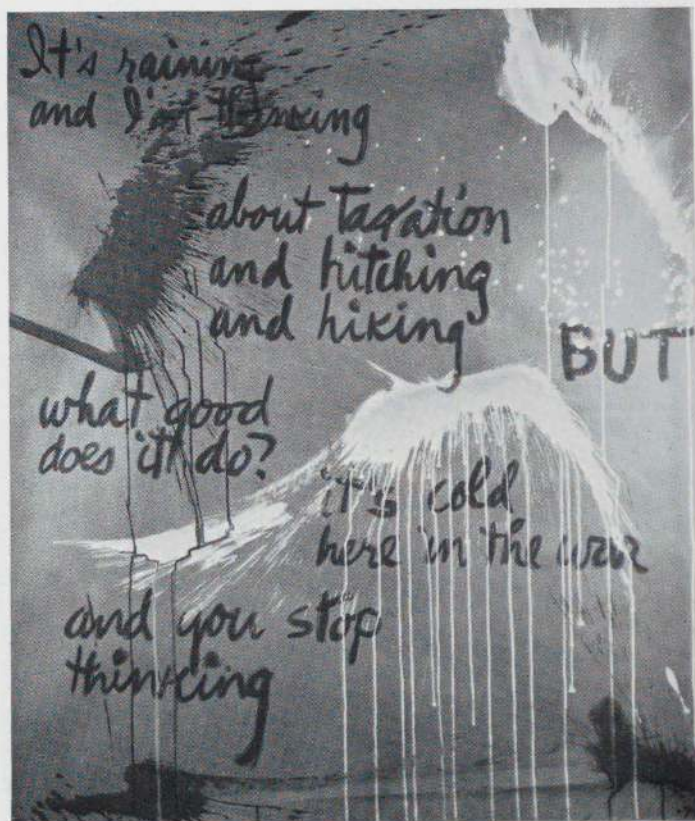 It's raining
and I'm thinking
about taxation
and hitching
and hiking
BUT
what good
does it do?
it's cold
here in the war
and you stop
thinking